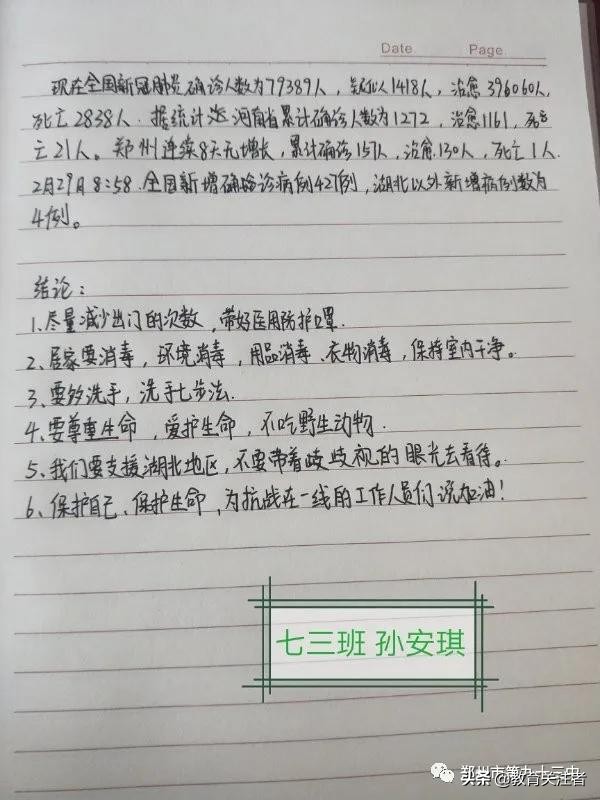 Date   Page
现在全国新冠肺炎确诊人数为79389人，疑似1418人，治愈39606人，
死亡2838人。据统计 河南省累计确诊人数为1272，治愈1161，死
亡21人。郑州连续8天无增长，累计确诊157人，治愈130人，死亡1人.
2月29日8:58.全国新增确诊病例427例，湖北以外新增病例数为
4例。
结论：
1.尽量减少出门的次数，带好医用防护口罩.
2、居家要消毒，环境消毒，用品消毒、衣物消毒，保持室内干净。
3、要多洗手，洗手七步法.
4、要尊重生命，爱护生命，不吃野生动物.
5、我们要支援湖北地区，不要带着歧歧视的眼光去看待。
6、保护自己、保护生命，为抗战在一线的工作人员们说加油！
七三班 孙安琪
郑州市第九十三中
头条@教育关注者